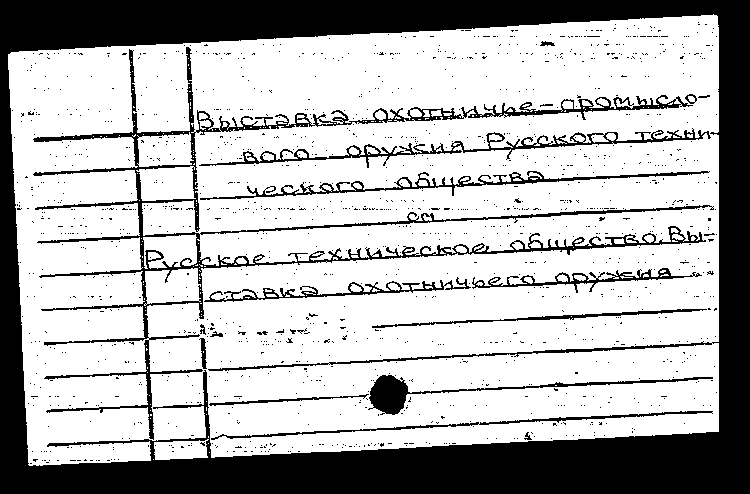 Выставка охотничье-промысло-
вого оружия Русского техни-
ческого общества
см
Русское техническое общество. Вы-
ставка охотничьего оружия